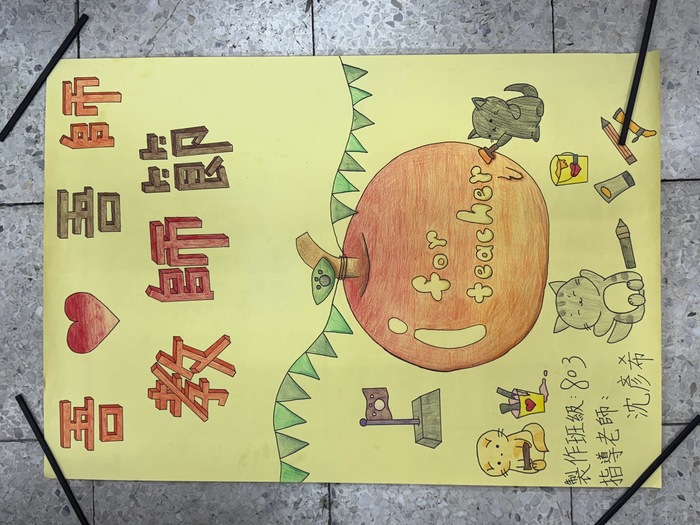 吾♥吾師
教師節
for
teacher
製作班級:803
指導老師:
沈彥希